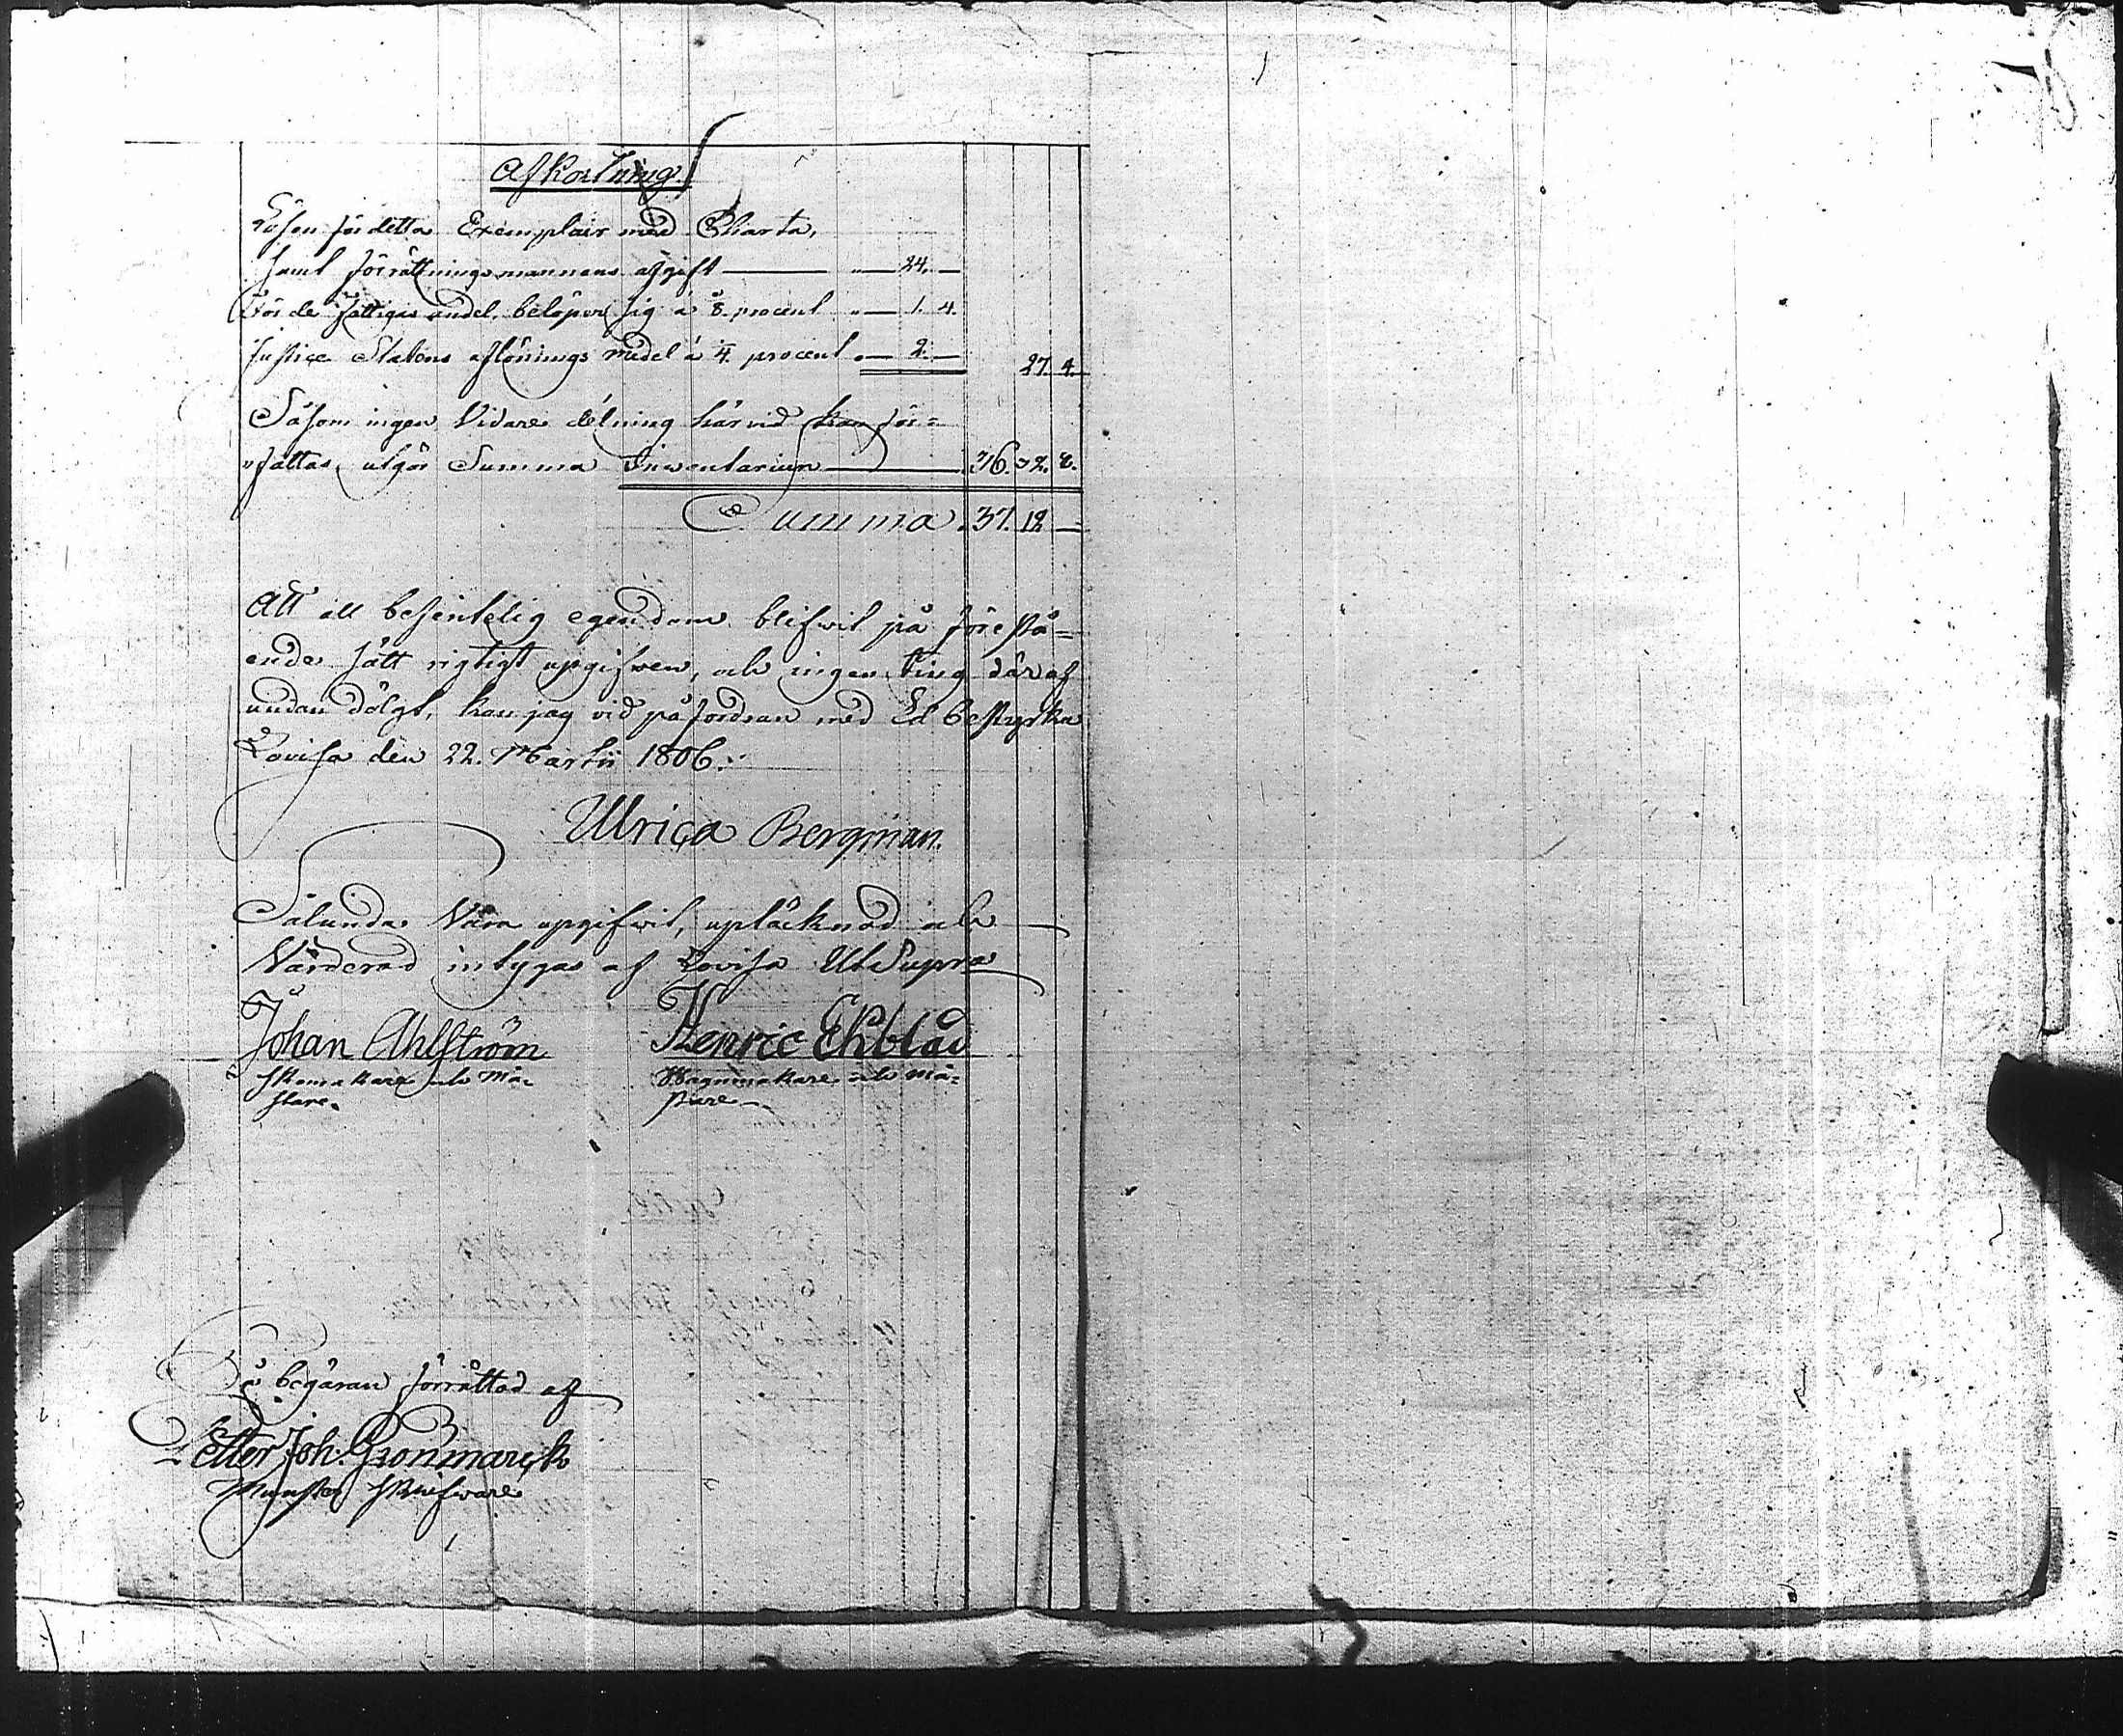 Afkortning.
Lösen för detta Exemplair med Charta,
samt förrättningsmannens afgift — " — 24. —
För de fattigas andel belöper sig à 1/8 procent " — 1. 4.
Justice Statens aflönings medel à 1/4 procent " — 2. — 27. 4.
Såsom ingen Vidare delning härvid kan för=
"fattas utgör Summa Inventarium — 36. 32. 8.
Summa . 37. 12 —
Att all befintelig egendom blifwit på förestå=
ende sätt rigtigt upgifwen, och ingen ting däraf
undan dölgt, kan jag vid påfordran med Ed bestyrka
Lovisa den 22. Martii 1806.
Ulrica Bergman.
Sålunda Vara upgifwit, uptäcknad och
Värderad intygas af Lovisa Ut Supra
Johan Ahlström Henric Ekblad
skomakare och mä= Wagnmakare och mä=
stare. stare
På begäran förrättad af
Petter Joh: Gronmarck
Munster skrifware